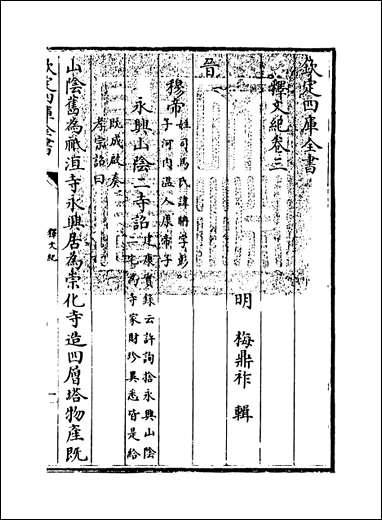 欽定四庫全書
釋文紀卷三
明 梅鼎祚 輯
晉
穆帝
姓司馬氏諱聃字彭
子河内溫人康帝子
永興山陰二寺詔
建康實錄云許詢捨永興山陰
二宅為寺家財珍異悉皆是給
既成啟奏
孝宗詔曰
山陰舊為祗洹寺永興居為崇化寺造四層塔物產既
欽定四庫全書
釋文紀
一